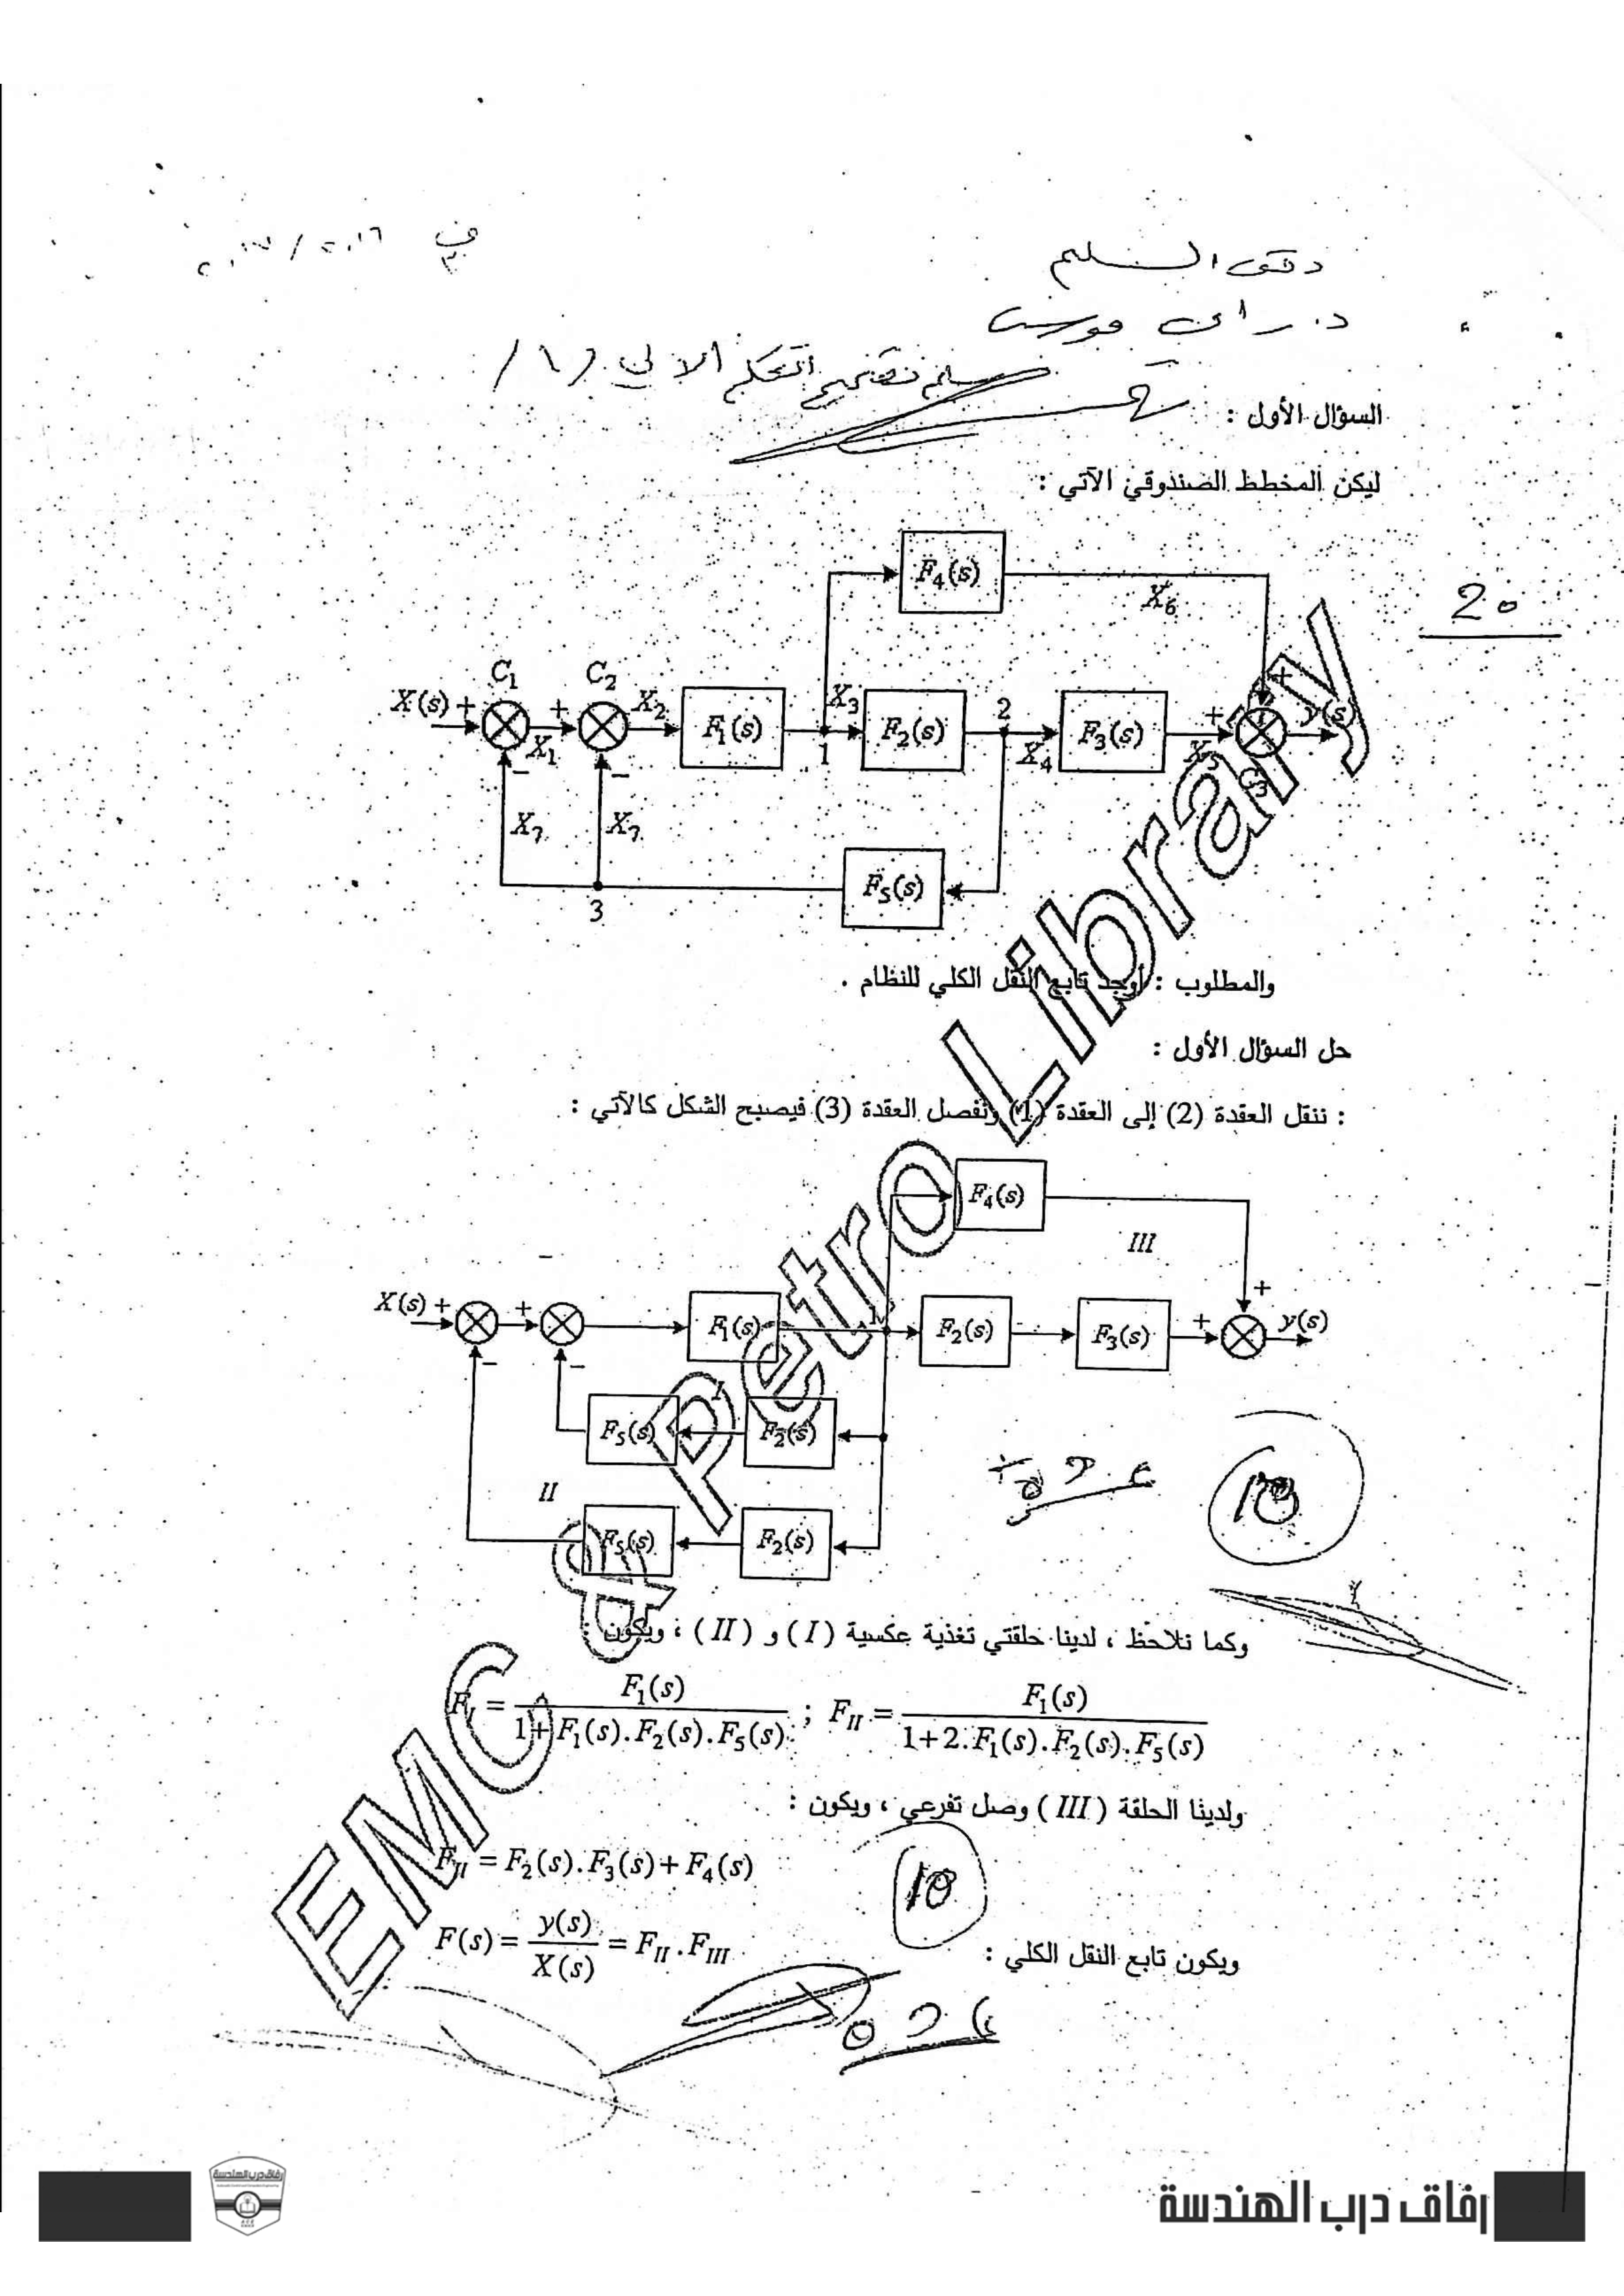 السؤال الأول :
ليكن المخطط الصندوقي الآتي :
20
F4(s)
X6
C1
C2
X(s) +
+
X1
X2
F1(s)
1
X3
F2(s)
2
X4
F3(s)
+
X5
+
C3
y(s)
−
−
X7
X7
F5(s)
3
والمطلوب : أوجد تابع النقل الكلي للنظام .
حل السؤال الأول :
: ننقل العقدة (2) إلى العقدة (1) ونفصل العقدة (3) فيصبح الشكل كالآتي :
F4(s)
III
X(s) +
+
F1(s)
1
F2(s)
F3(s)
+
+
y(s)
−
−
I
F5(s)
F2(s)
II
F5(s)
F2(s)
وكما نلاحظ ، لدينا حلقتي تغذية عكسية (I) و (II) ، ويكون :
F_I = F1(s) / (1+F1(s).F2(s).F5(s)) ; F_II = F1(s) / (1+2.F1(s).F2(s).F5(s))
ولدينا الحلقة (III) وصل تفرعي ، ويكون :
F_II = F2(s).F3(s)+F4(s)
10
ويكون تابع النقل الكلي :
F(s) = y(s)/X(s) = F_II.F_III
EMC & Petro Library
رفاق درب الهندسة
رفاق درب الهندسة